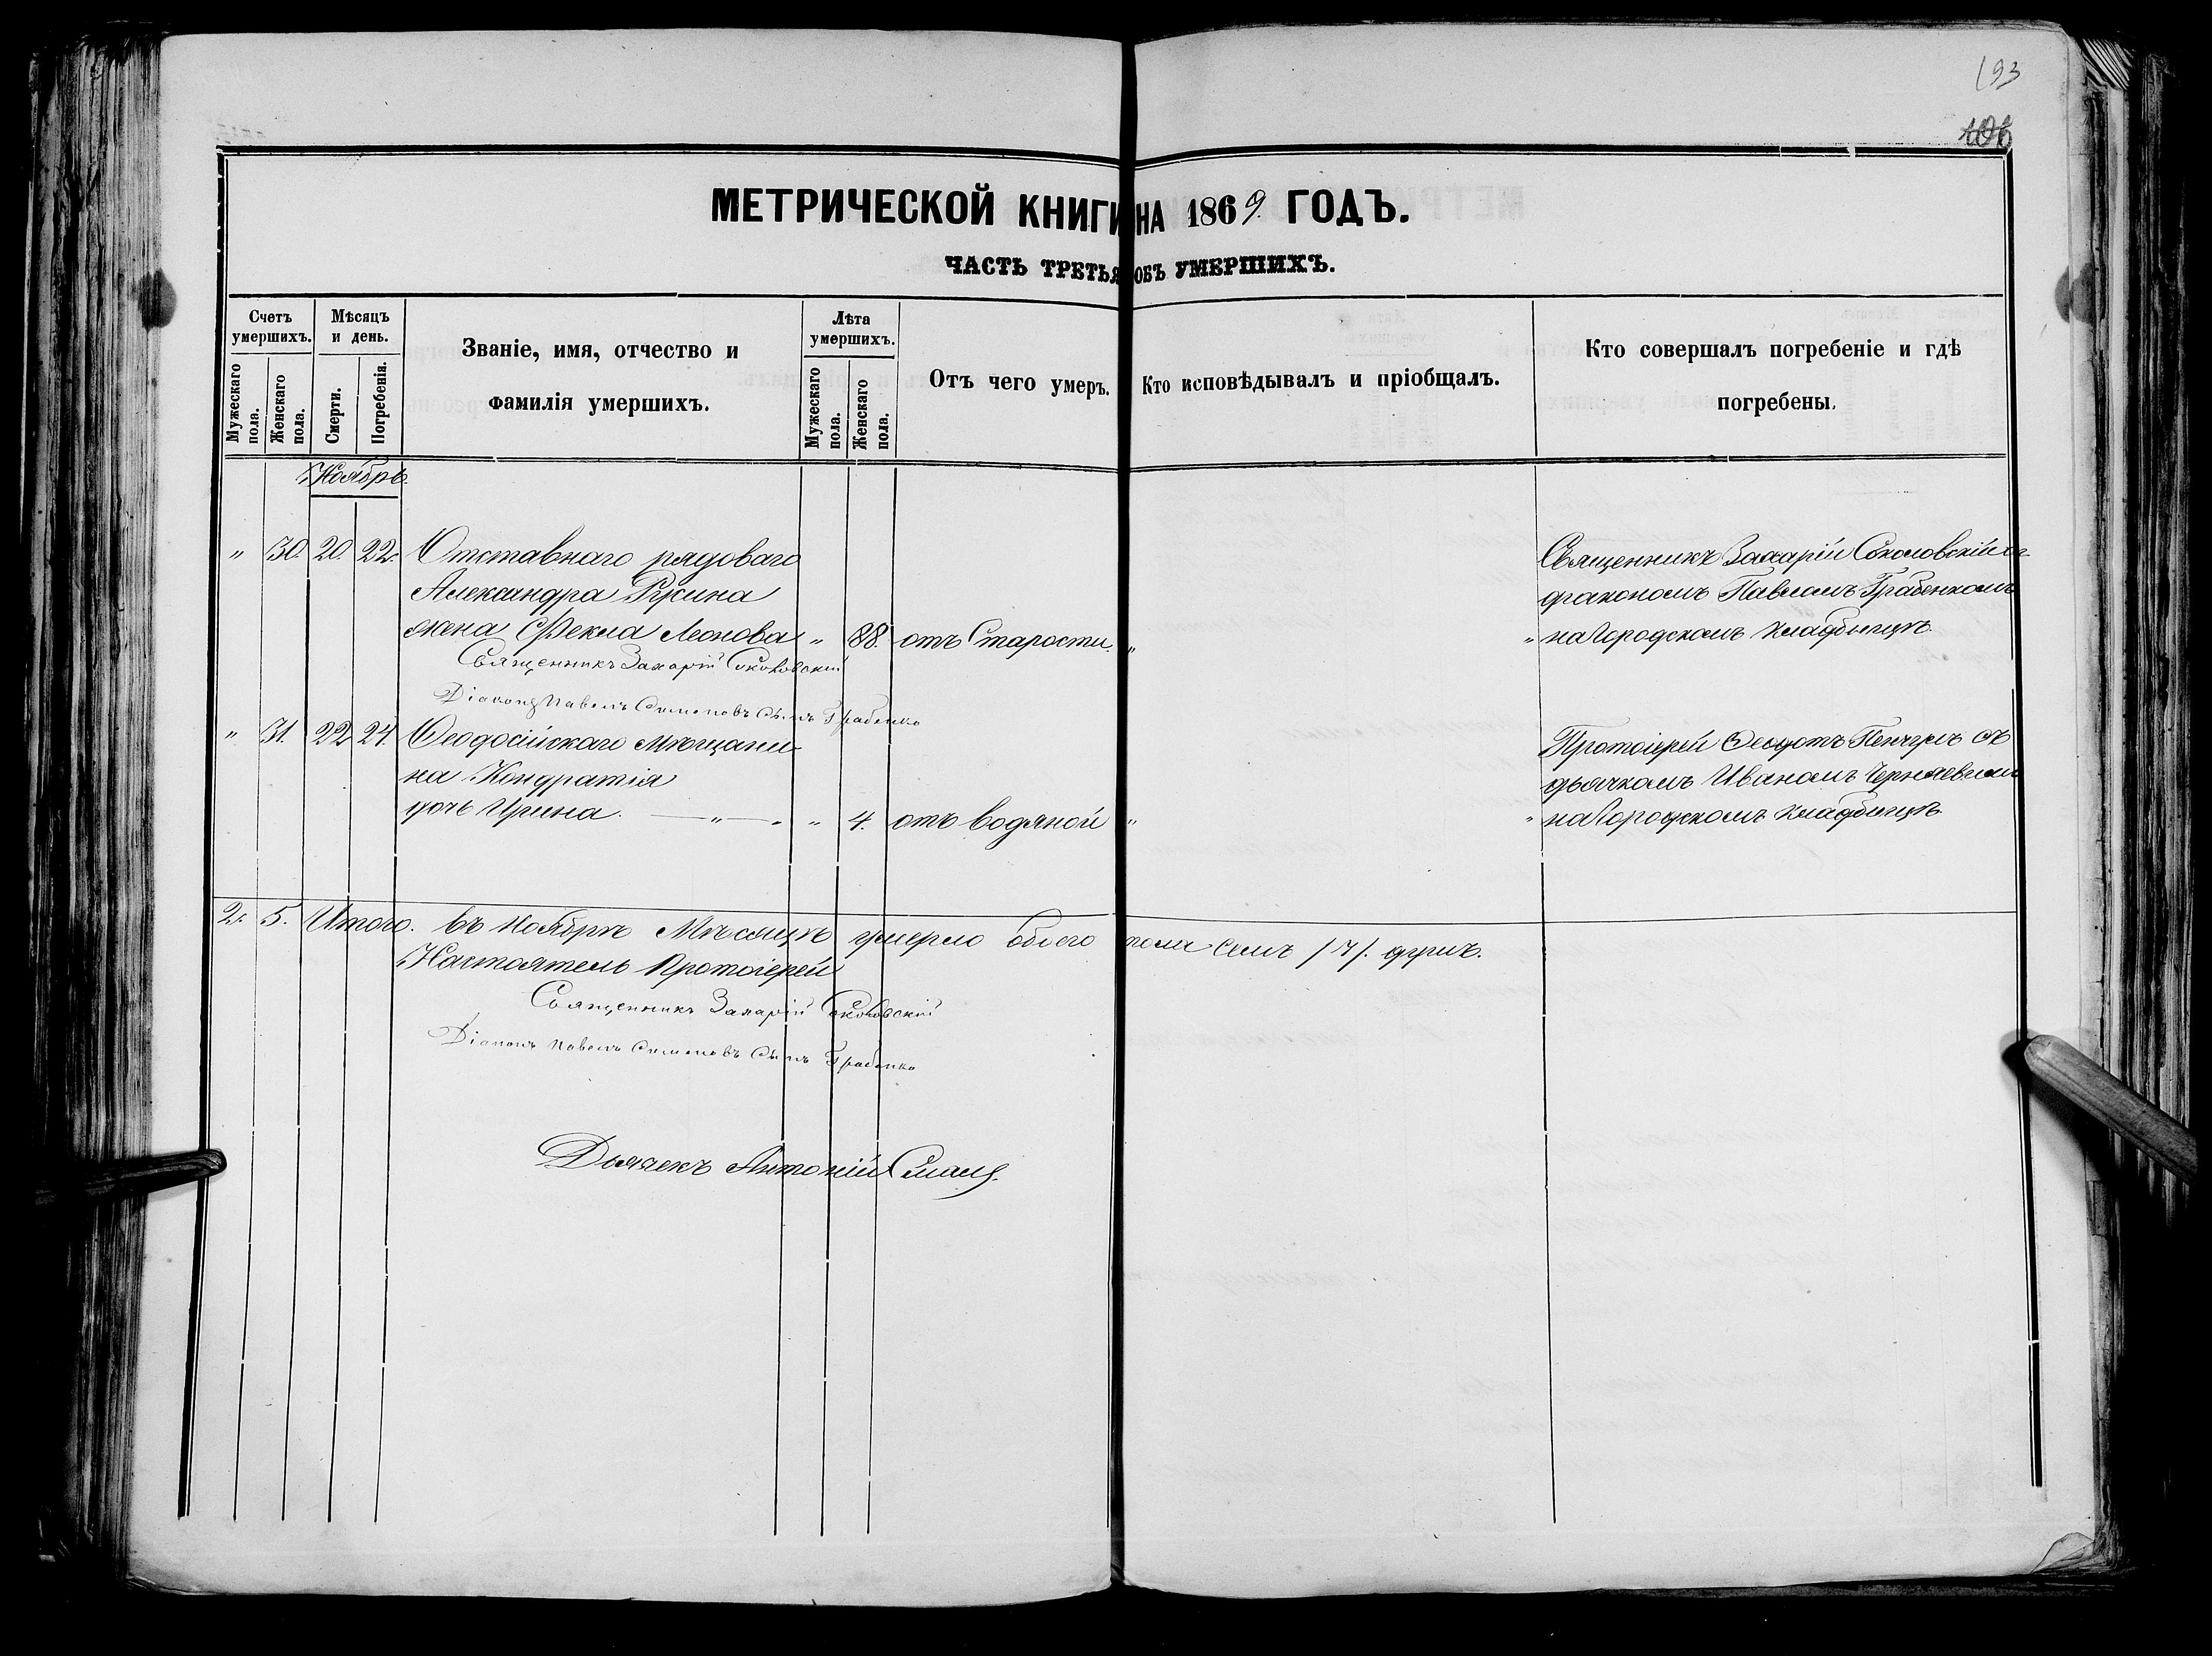 193
106
МЕТРИЧЕСКОЙ КНИГИ НА 1869. ГОДЪ.
ЧАСТЬ ТРЕТЬЯ ОБЪ УМЕРШИХЪ.
Счетъ умершихъ.
Мужескаго пола.
Женскаго пола.
Мѣсяцъ и день.
Смерти.
Погребенія.
Званіе, имя, отчество и
фамилія умершихъ.
Лѣта умершихъ.
Мужескаго пола.
Женскаго пола.
Отъ чего умеръ.
Кто исповѣдывалъ и пріобщалъ.
Кто совершалъ погребеніе и гдѣ
погребены.
Ноябрь.
" 30. 20. 22. Отставнаго рядоваго
Александра
жена Ѳекла Леонова " 88. отъ Старости. "
Священникъ Захарій Соколовскій съ
діакономъ Павломъ Грабенкомъ
" на Городскомъ кладбищѣ.
Священникъ Захарій Соколовскій
Діаконъ Павелъ Симоновъ Сынъ Грабенко
" 31. 22 24. Ѳеодосійскаго Мѣщани-
на Кондратія
дочь Ирина. — " — " " 4. отъ водяной "
Протоіерей Ѳеодотъ съ
дьячкомъ Иваномъ Чернявскимъ
" на Городскомъ кладбищѣ.
2. 5. Итого. въ Ноябрѣ Мѣсяцѣ умерло обоего пола семь /7/. душъ.
Настоятель Протоіерей
Священникъ Захарій Соколовскій
Діаконъ Павелъ Симоновъ Сынъ Грабенко
Дьячекъ Антоній